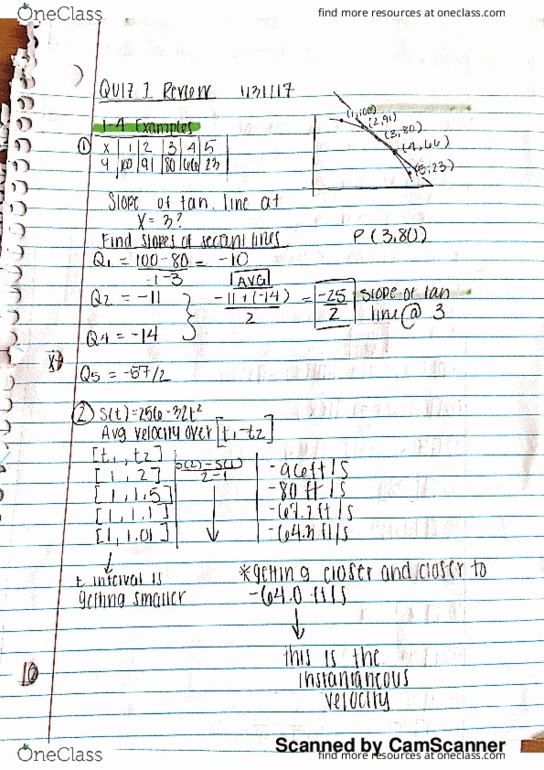 OneClass
find more resources at oneclass.com
QUIZ 1 Review 1/31/17
1-4 Examples
(1,100)
(2,91)
(3,80)
(4,66)
(5,23)
① X | 1 | 2 | 3 | 4 | 5
y | 100 | 91 | 80 | 66 | 23
Slope of tan. line at
X = 3?
Find slopes of secant lines
P (3,80)
Q1 = 100-80 = -10
1-3
AVG
Q2 = -11
-11+(-14) = -25 slope of tan
2 2 line @ 3
Q4 = -14
Q5 = -57/2
② S(t)=256-32t²
Avg velocity over [t1-t2]
[t1, t2]
s(2)-s(1)
2-1
[1, 2] -96ft/s
[1, 1.5] -80 ft/s
[1, 1.1] -67.2ft/s
[1, 1.01] -64.3ft/s
t interval is
getting smaller
*getting closer and closer to
-64.0 ft/s
this is the
instantaneous
velocity
Scanned by CamScanner
OneClass
find more resources at oneclass.com